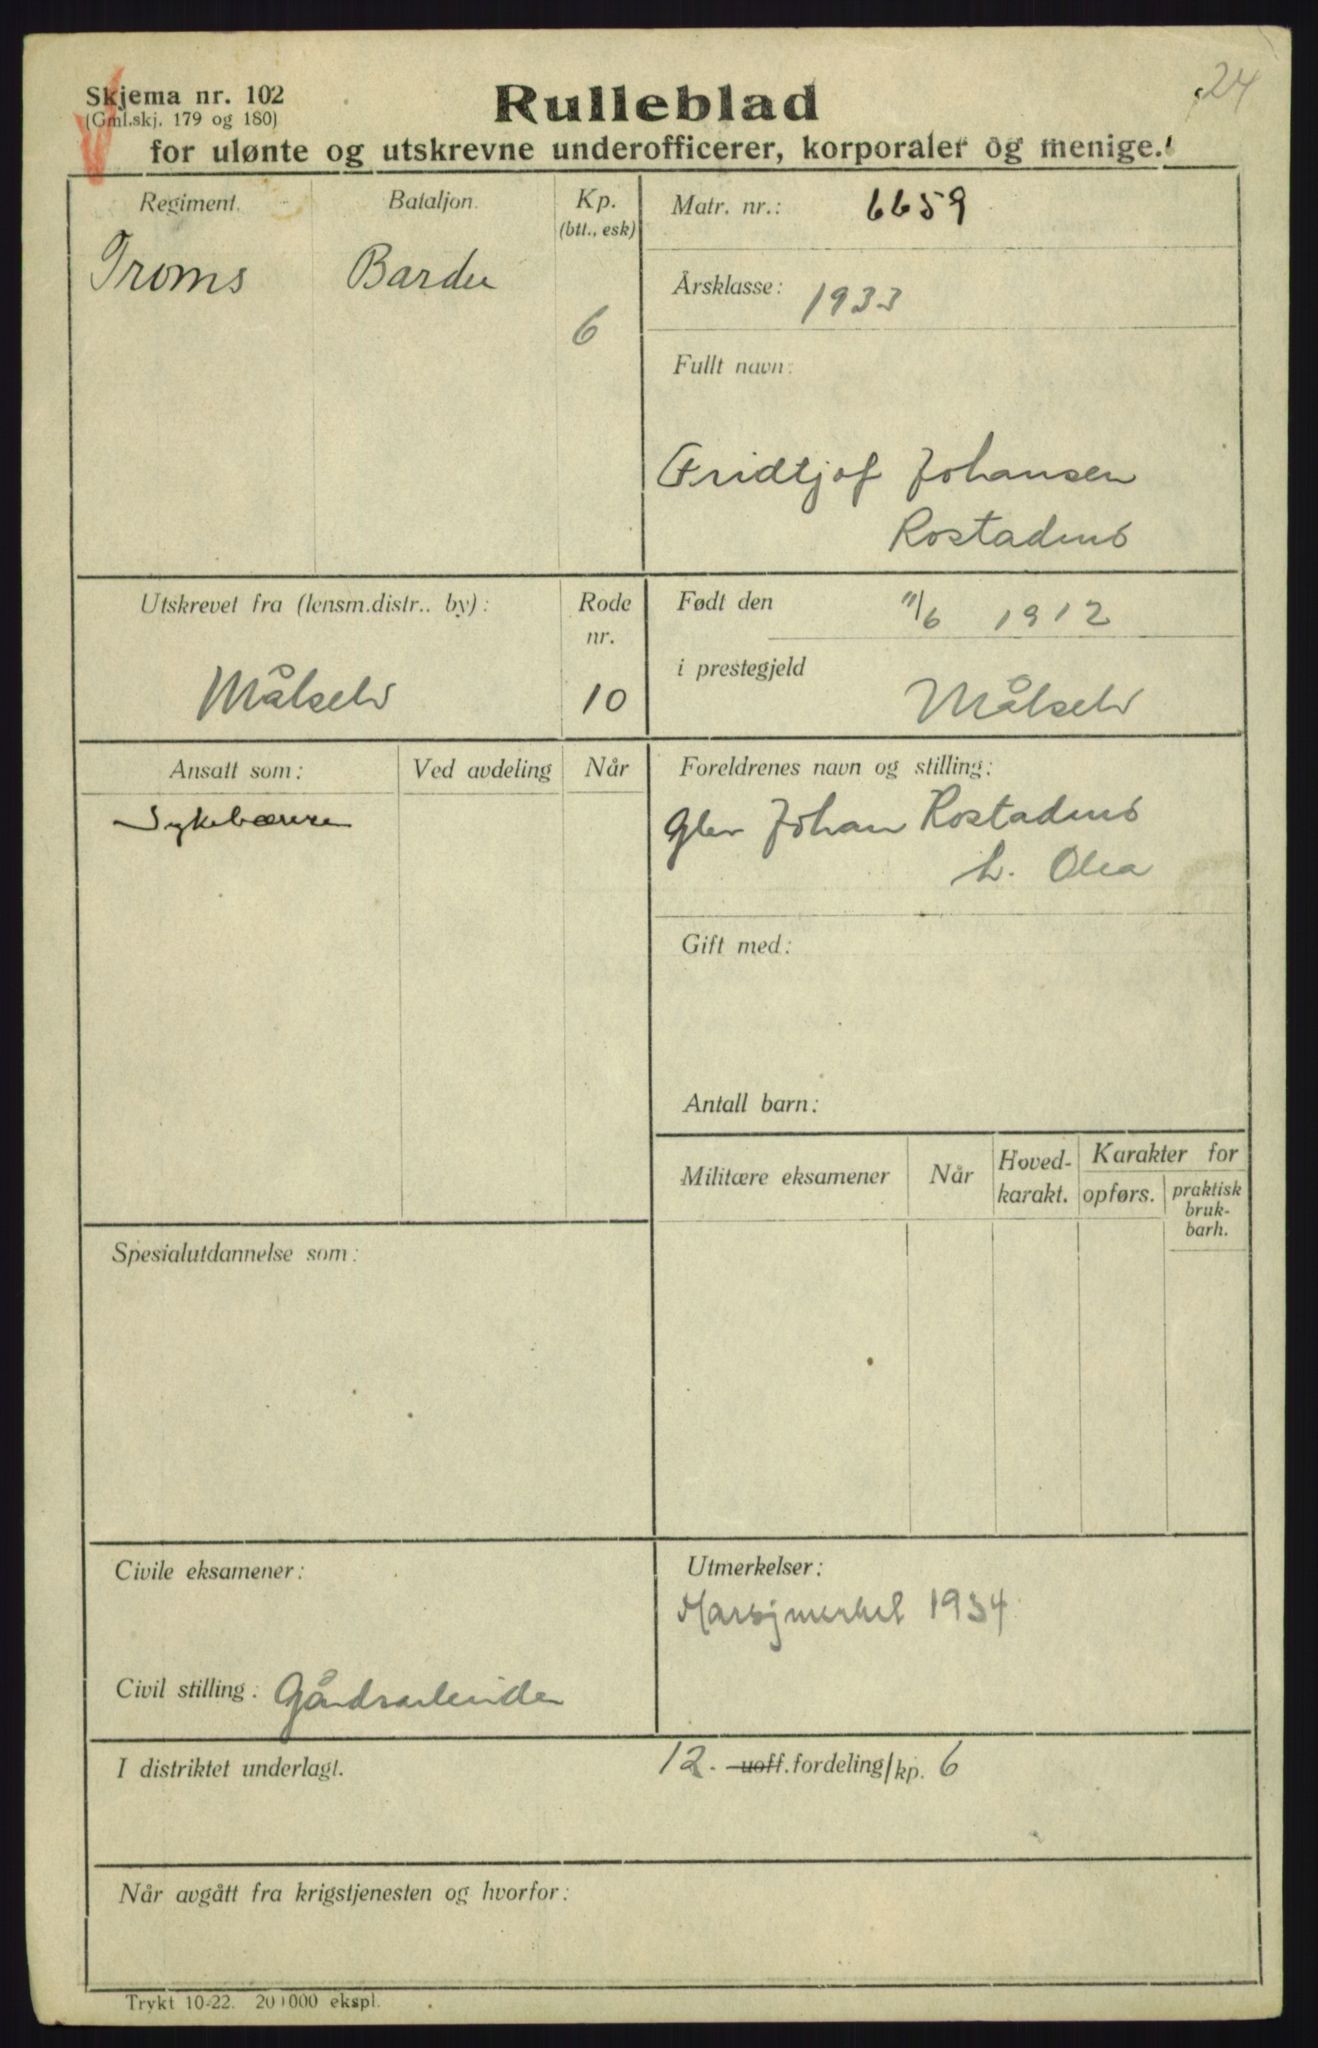 24
Skjema nr. 102
(Gml.skj. 179 og 180)
Rulleblad
for ulønte og utskrevne underofficerer, korporaler og menige.
Regiment.
Bataljon.
Kp.
(btl., esk)
Troms
Bardu
6
Matr. nr.: 6659
Årsklasse: 1933
Fullt navn:
Fridtjof Johansen
Rostadmo
Utskrevet fra (lensm.distr.. by):
Rode
nr.
Målselv
10
Født den 11/6 1912
i prestegjeld
Målselv
Ansatt som:
Ved avdeling
Når
Sykebærer
Foreldrenes navn og stilling:
Gbr Johan Rostadmo
h. Olea
Gift med:
Antall barn:
Militære eksamener
Når
Hoved-
karakt.
Karakter for
opførs.
praktisk
bruk-
barh.
Spesialutdannelse som:
Civile eksamener:
Civil stilling: Gårdsarbeider
Utmerkelser:
Marsjmerket 1934
I distriktet underlagt.
12. uoff. fordeling/kp. 6
Når avgått fra krigstjenesten og hvorfor:
Trykt 10-22. 20 000 ekspl.